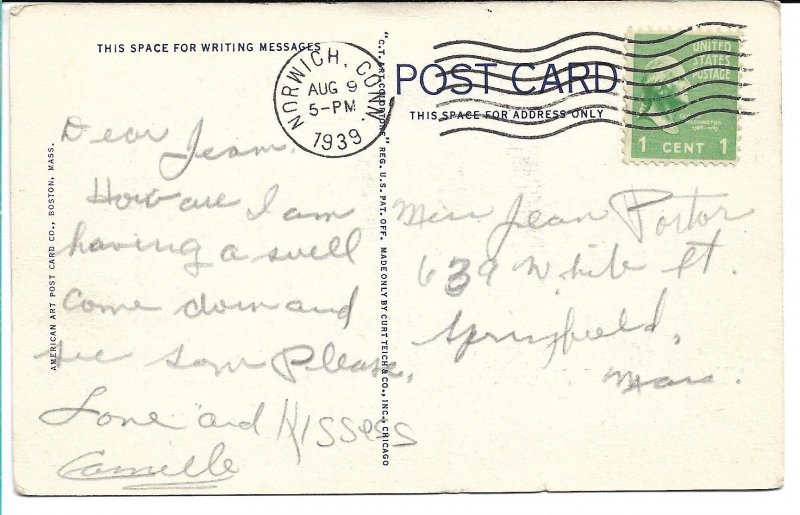 THIS SPACE FOR WRITING MESSAGES
Dear Jean
How are I am
having a swell
come down and
see some Please,
Love and Kissess
Camille
AMERICAN ART POST CARD CO., BOSTON, MASS.
"C.T. ART-COLORTONE" REG. U.S. PAT. OFF. MADE ONLY BY CURT TEICH & CO., INC., CHICAGO
NORWICH, CONN.
AUG 9
5-PM
1939
POST CARD
THIS SPACE FOR ADDRESS ONLY
UNITED
STATES
POSTAGE
WASHINGTON
1 CENT 1
Miss Jean Portor
639 White St.
Springfield,
Mass.